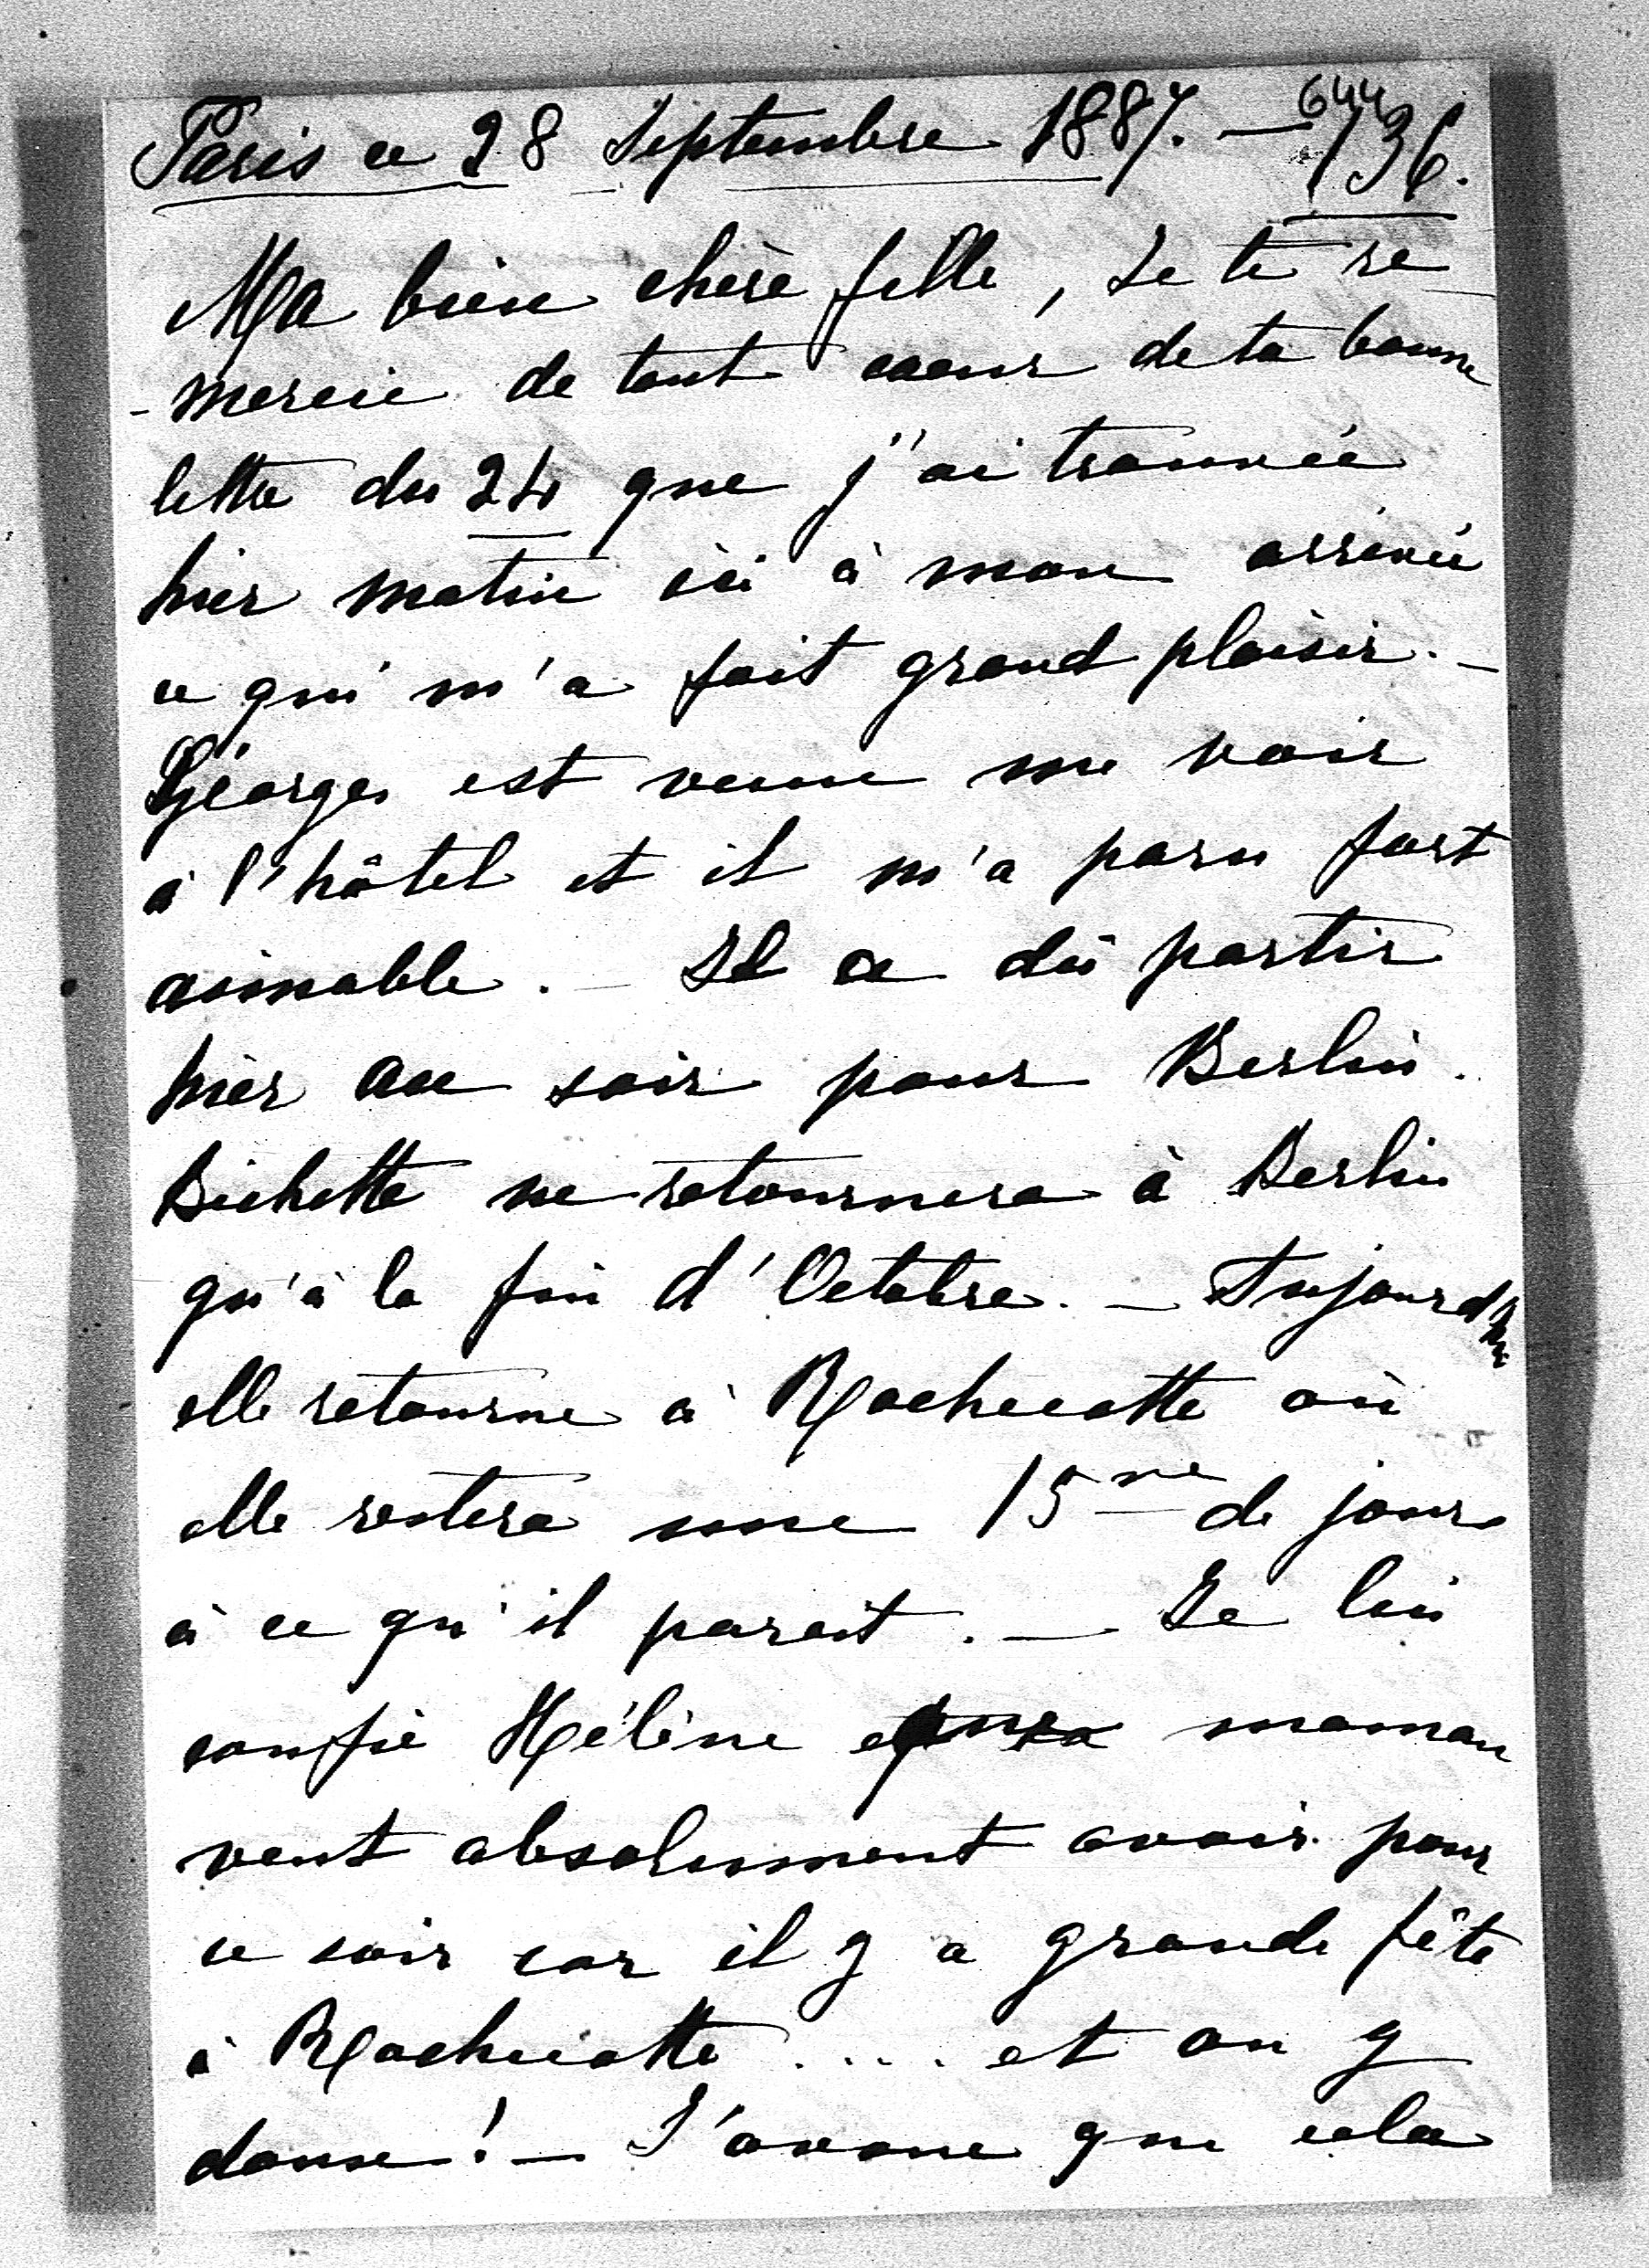 Paris ce 28 Septembre 1887. — 136.
644
Ma bien chère fille, Je te re-
-mercie de tout coeur de ta bonne
lettre du 24 que j'ai trouvée
hier matin ici à mon arrivée
ce qui m'a fait grand plaisir. —
Géorges est venu me voir
à l'hôtel et il m'a paru fort
aimable. — Il a dû partir
hier au soir pour Berlin.
Bichette ne retournera à Berlin
qu'à la fin d'Octobre. — Aujourd'hui
elle retourne à Rochecotte où
elle restera une 15ne de jours
à ce qu'il parait. — Je lui
confie Hélène que maman
veut absolument avoir pour
ce soir car il y a grande fête
à Rochecotte .... et on y
danse! — J'avoue que cela